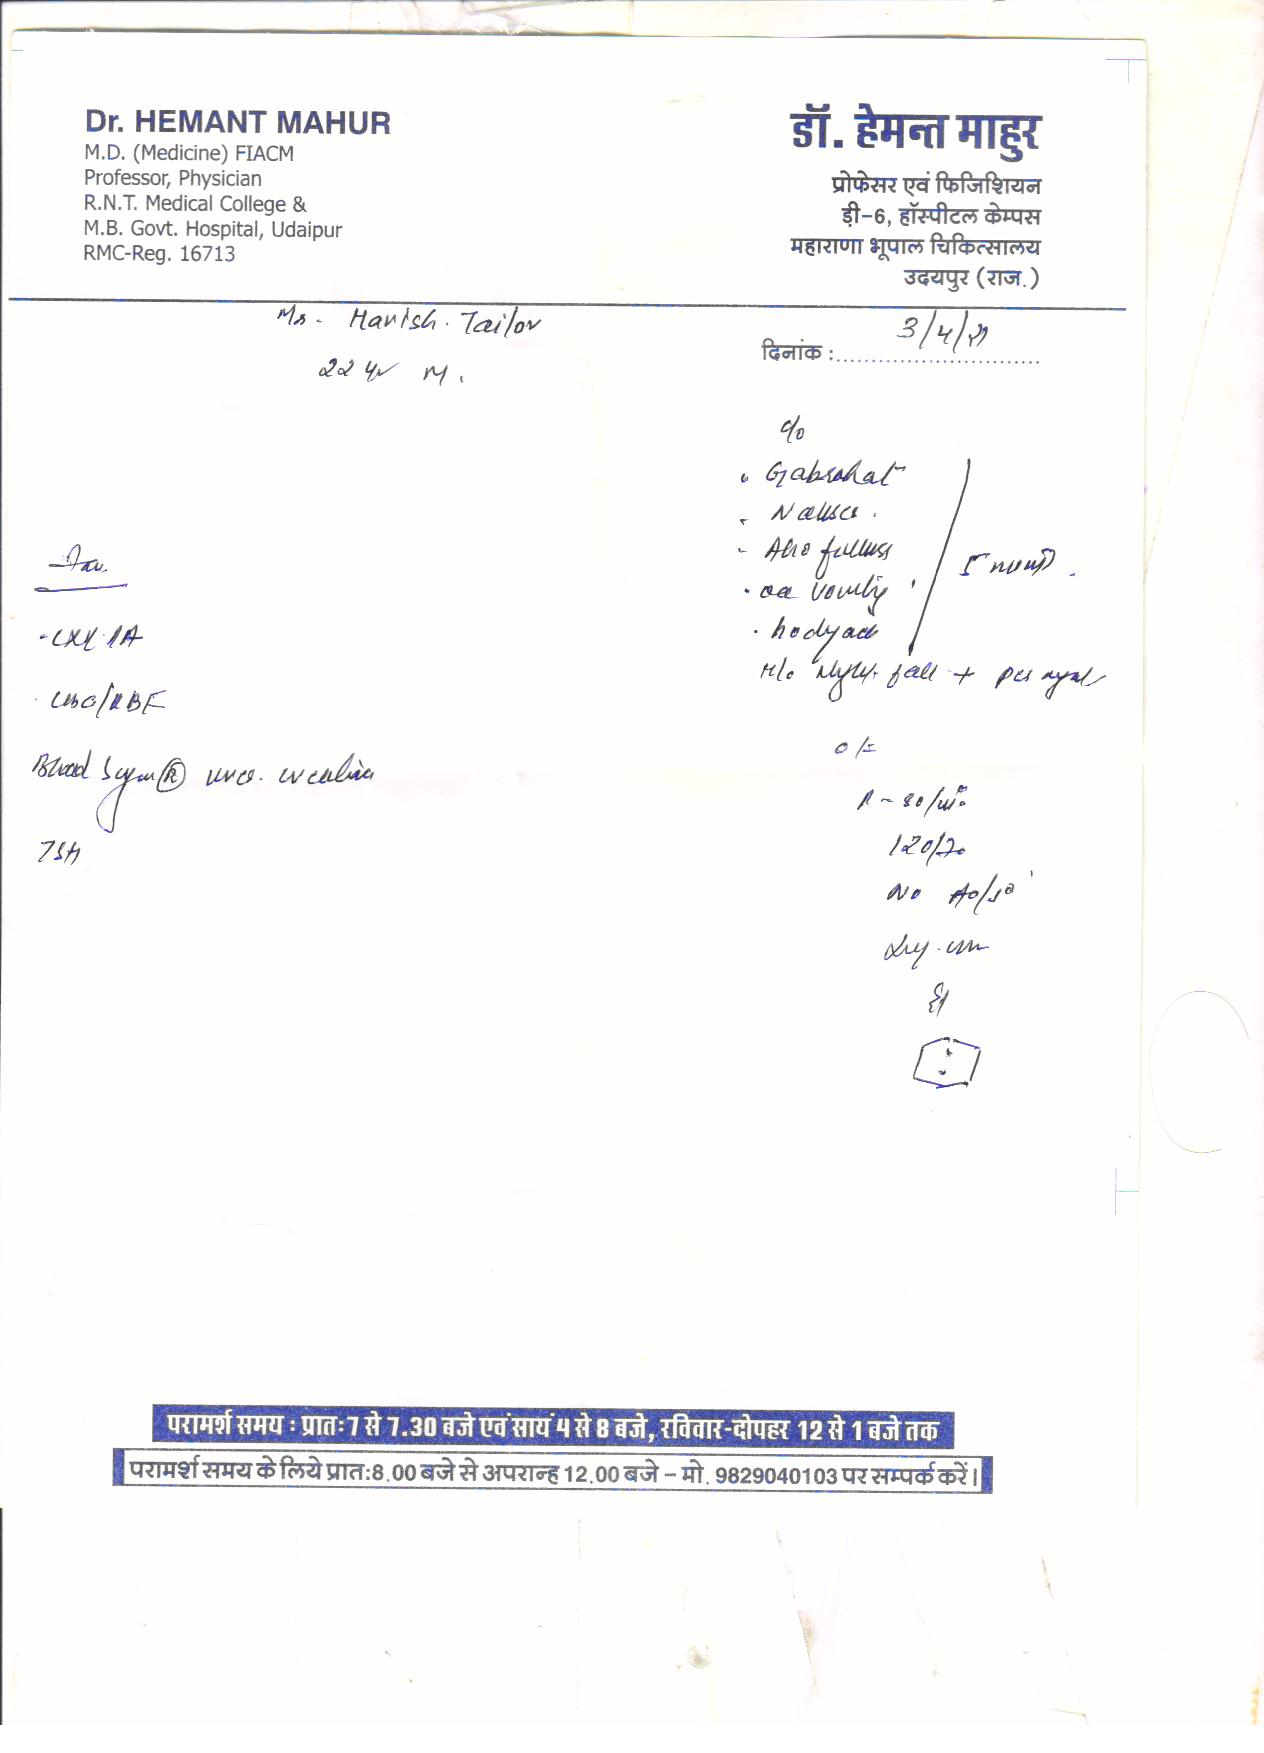 Dr. HEMANT MAHUR
M.D. (Medicine) FIACM
Professor, Physician
R.N.T. Medical College &
M.B. Govt. Hospital, Udaipur
RMC-Reg. 16713
डॉ. हेमन्त माहुर
प्रोफेसर एवं फिजिशियन
ड़ी-6, हॉस्पीटल केम्पस
महाराणा भूपाल चिकित्सालय
उदयपुर (राज.)
Mr. Harish. Tailor
22 yr M.
दिनांक : 3/4/21
c/o
Gabrahat
Nausea
Abd fullness
occ vomiting
bodyache
H/o fall +
O/E
120/70
No
Inv.
CXR PA
CBC/
Blood Sugar (R) urea. creatinine
TSH
परामर्श समय : प्रातः 7 से 7.30 बजे एवं सायं 4 से 8 बजे, रविवार-दोपहर 12 से 1 बजे तक
परामर्श समय के लिये प्रात:8.00 बजे से अपरान्ह 12.00 बजे – मो. 9829040103 पर सम्पर्क करें।